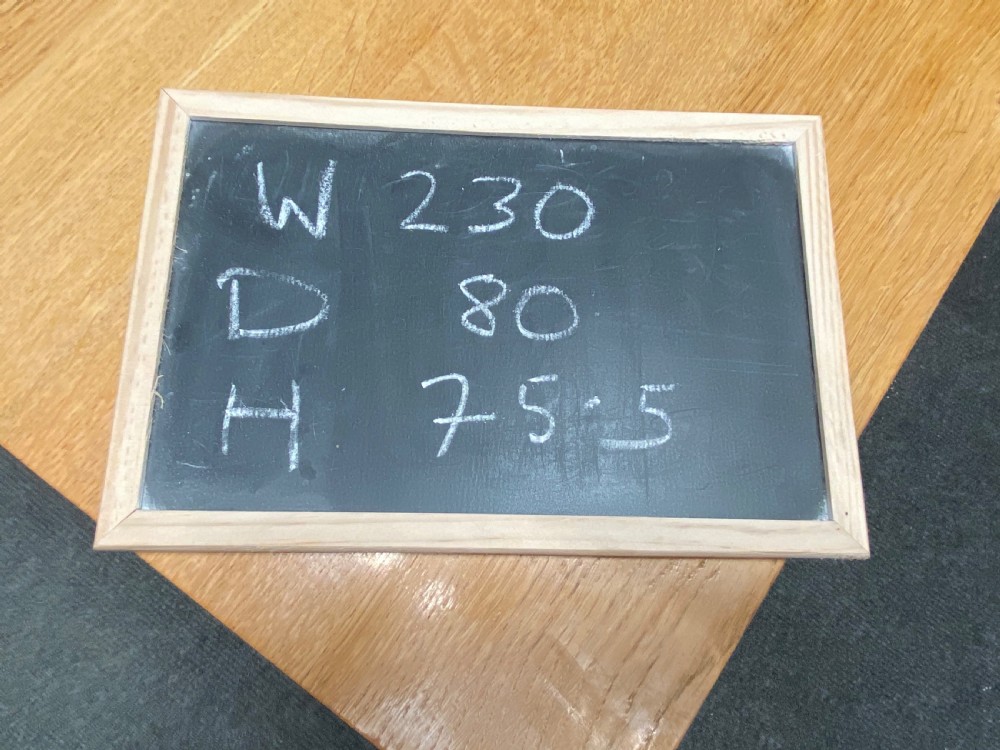 W 230
D 80
H 75.5